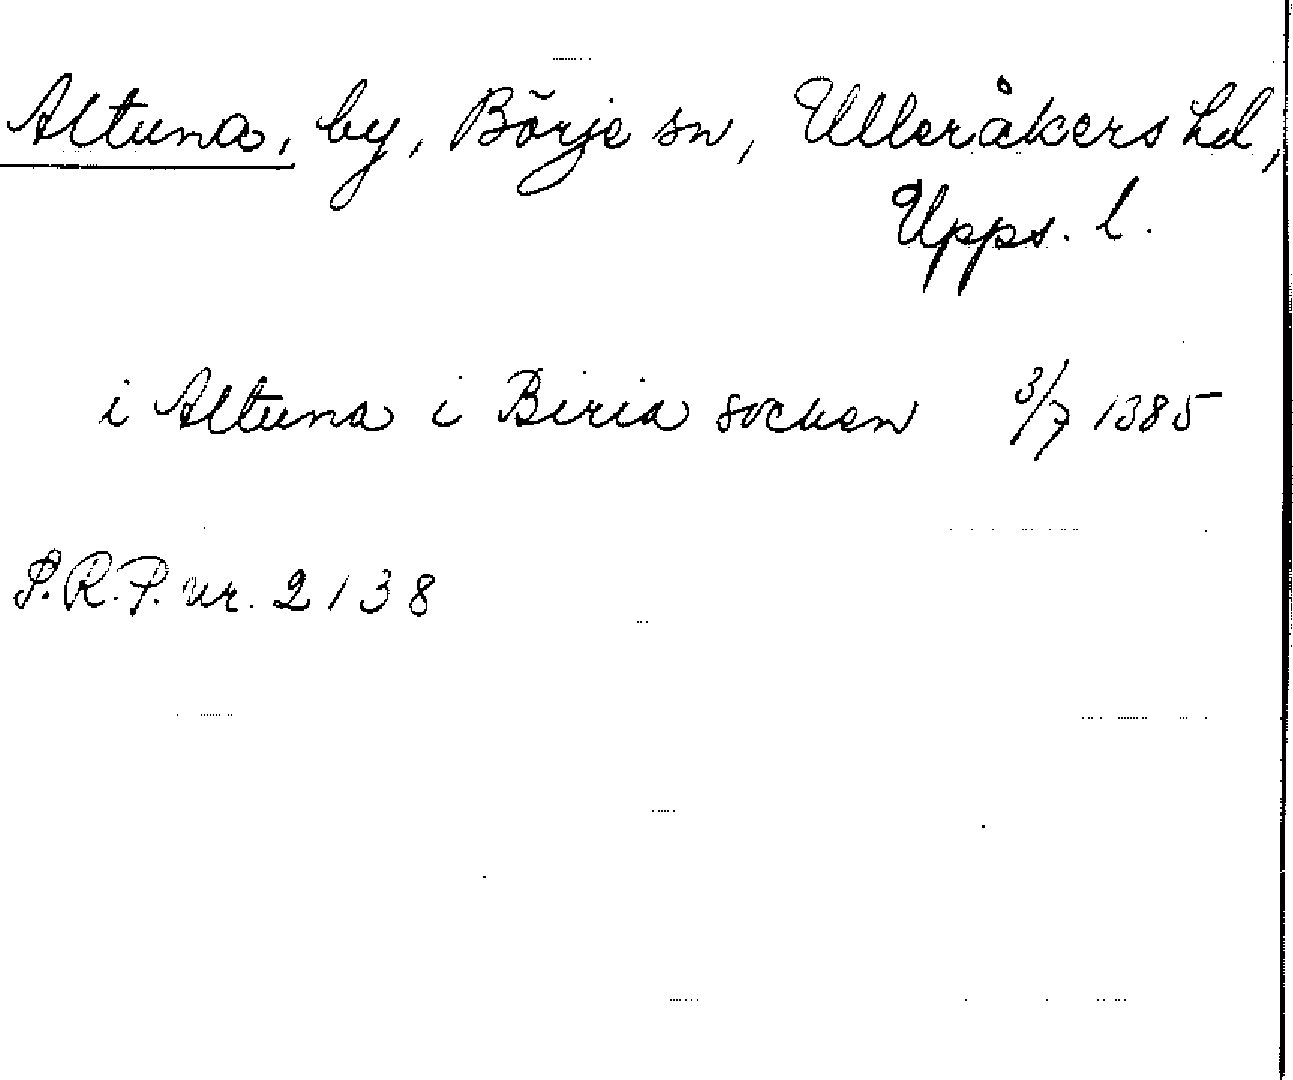 Altuna, by, Börje sn, Ulleråkers hd,
Upps. l.
i Altuna i Biria socken 3/7 1385
S.R.P. nr. 2138